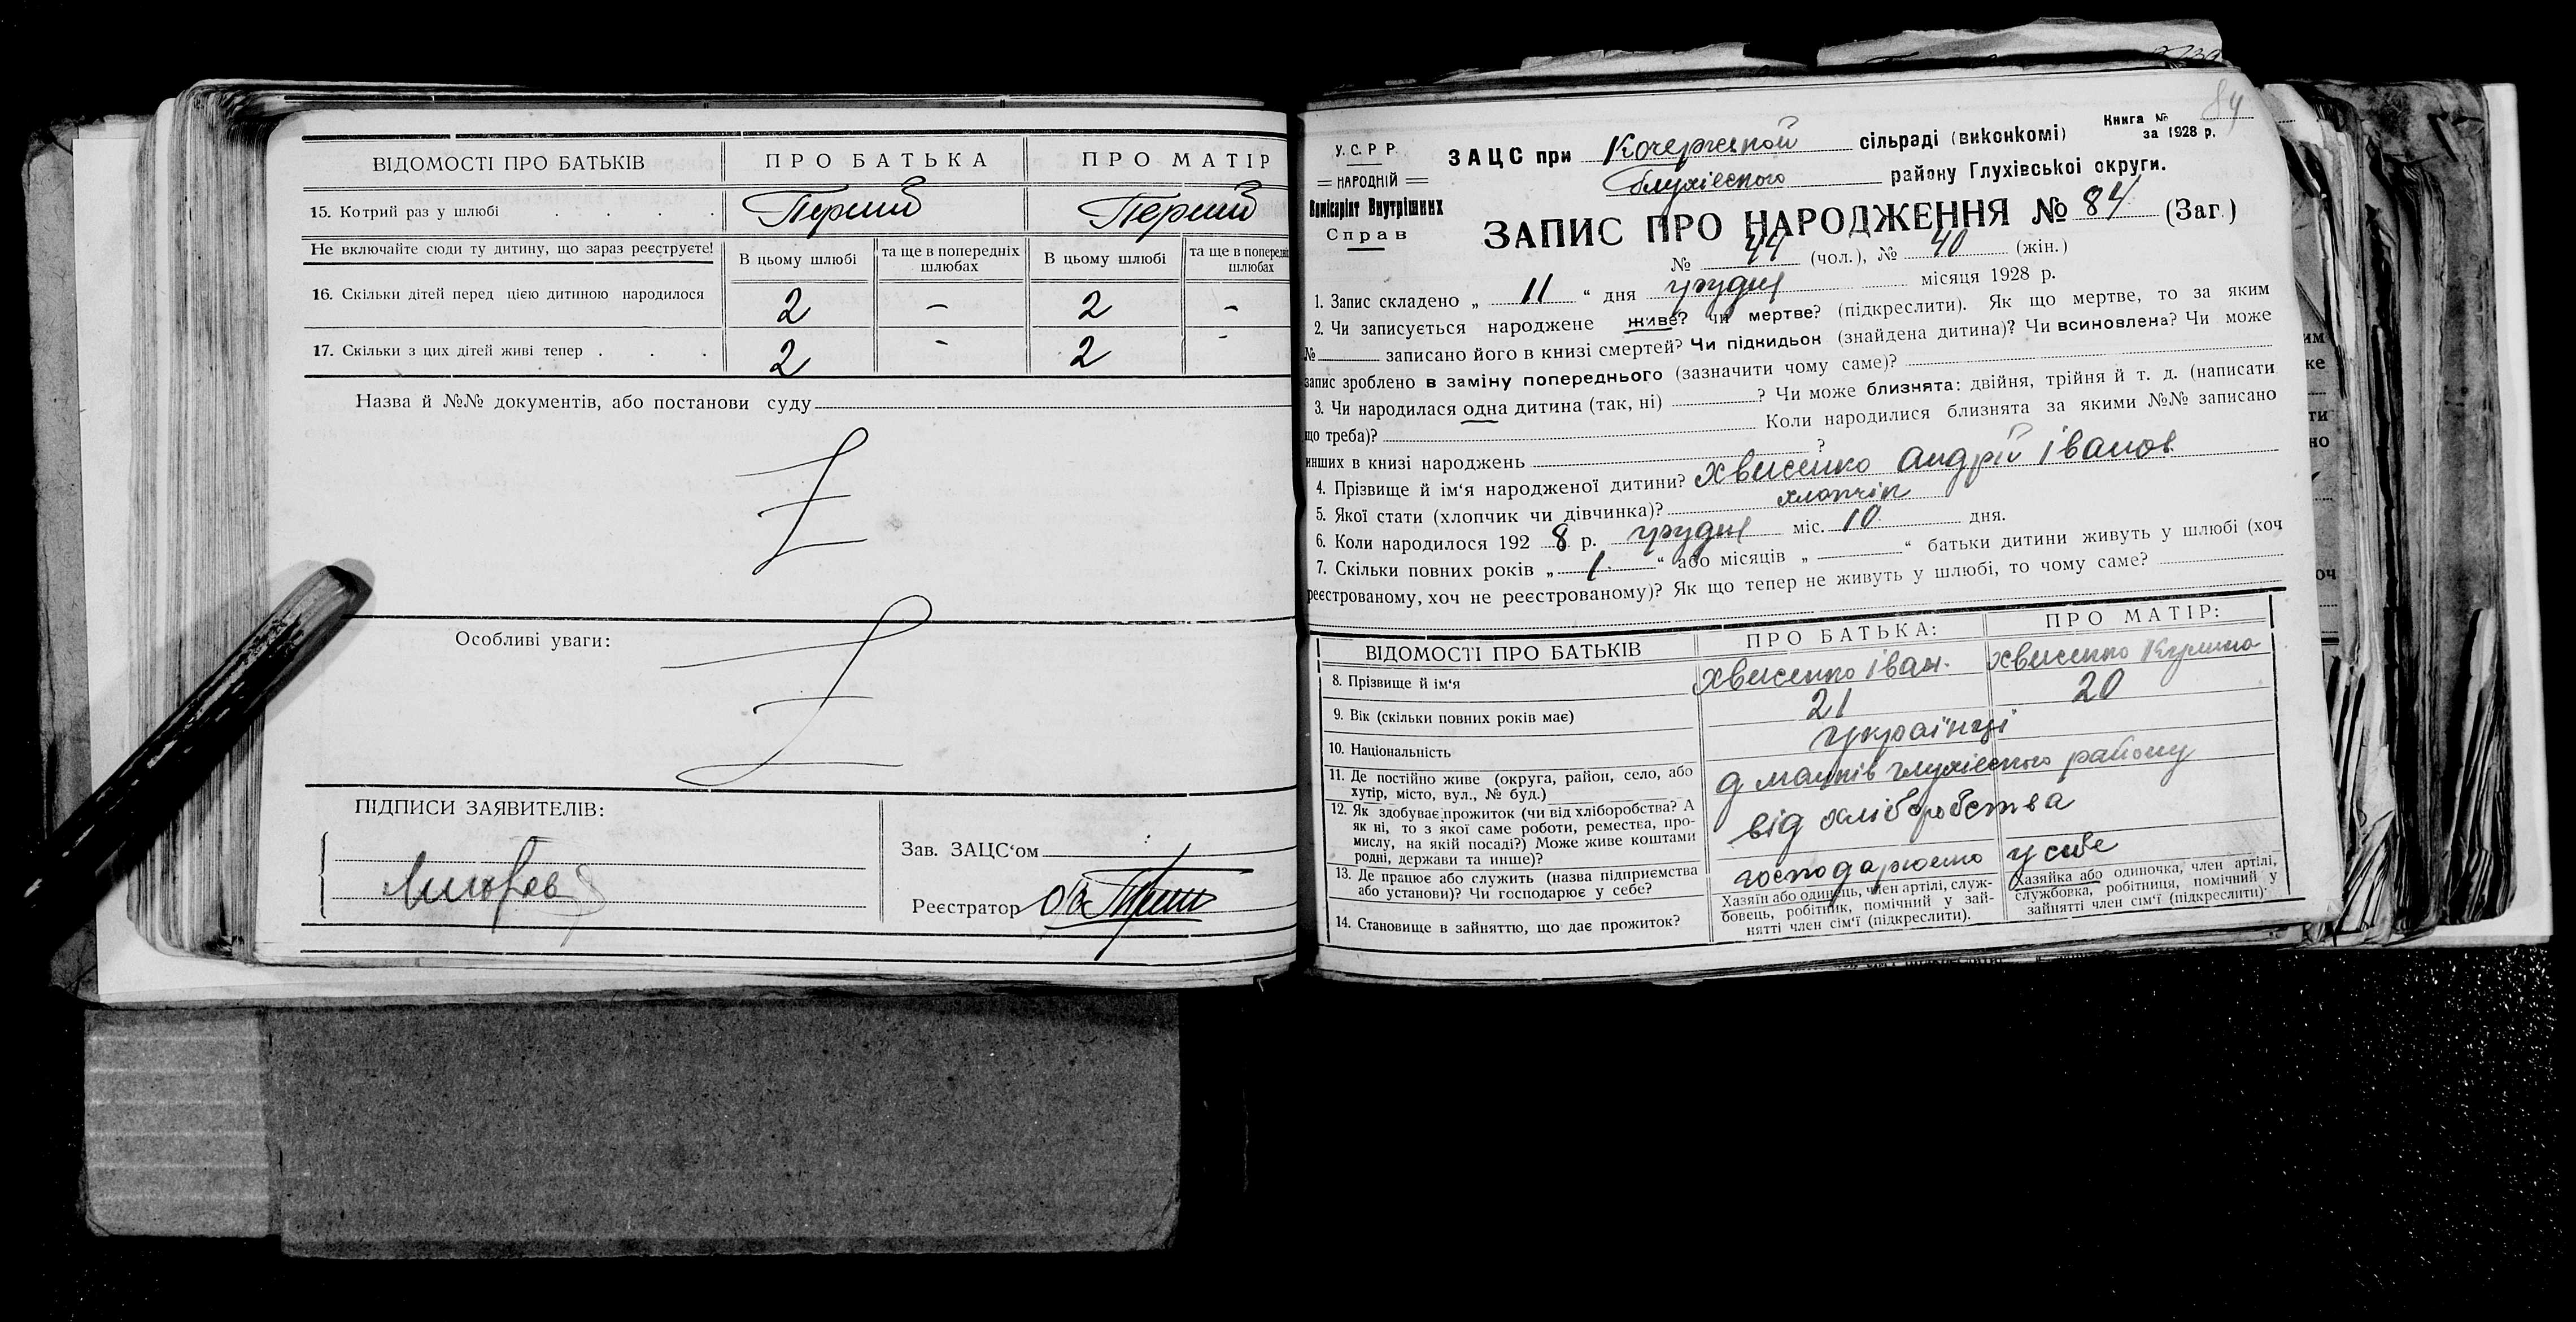 ВІДОМОСТІ ПРО БАТЬКІВ ПРО БАТЬКА ПРО МАТІР
15. Котрий раз у шлюбі . . . . Перший Перший
Не включайте сюди ту дитину, що зараз реєструєте!
В цьому шлюбі та ще в попередніх шлюбах В цьому шлюбі та ще в попередніх шлюбах
16. Скільки дітей перед цією дитиною народилося 2 - 2 -
17. Скільки з цих дітей живі тепер . . . 2 - 2 -
Назва й №№ документів, або постанови суду
Z
Особливі уваги:
Z
ПІДПИСИ ЗАЯВИТЕЛІВ:
Зав. ЗАЦС'ом
Реєстратор
84
Книга №
за 1928 р.
У. С. Р. Р.
НАРОДНІЙ
Комісаріят Внутрішних
Справ
ЗАЦС при сільраді (виконкомі)
Глухівського району Глухівської округи.
ЗАПИС ПРО НАРОДЖЕННЯ № 84 (Заг.)
№ 44 (чол.), № 40 (жін.)
1. Запис складено „ 11 “ дня грудня місяця 1928 р.
2. Чи записується народжене живе? чи мертве? (підкреслити). Як що мертве, то за яким
№ записано його в книзі смертей? Чи підкидьок (знайдена дитина)? Чи всиновлена? Чи може
запис зроблено в заміну попереднього (зазначити чому саме)?
3. Чи народилася одна дитина (так, ні) ? Чи може близнята: двійня, трійня й т. д. (написати
що треба)? Коли народилися близнята за якими №№ записано
инших в книзі народжень ?
4. Прізвище й ім‘я народженої дитини? Хвисенко Андрій Іванов.
5. Якої стати (хлопчик чи дівчинка)? хлопчік
6. Коли народилося 192 8 р. грудня міс. 10 дня.
7. Скільки повних років „ 1 “ або місяців „ “ батьки дитини живуть у шлюбі (хоч
реєстрованому, хоч не реєстрованому)? Як що тепер не живуть у шлюбі, то чому саме?
ВІДОМОСТІ ПРО БАТЬКІВ ПРО БАТЬКА: ПРО МАТІР:
8. Прізвище й ім‘я Хвисенко Іван. Хвисенко
9. Вік (скільки повних років має) 21 20
10. Національність українці
11. Де постійно живе (округа, район, село, або
хутір, місто, вул., № буд.) Глухівського району
12. Як здобуває прожиток (чи від хліборобства? А
як ні, то з якої саме роботи, ремества, про-
мислу, на якій посаді?) Може живе коштами
родні, держави та инше)? від хліборобства
13. Де працює або служить (назва підприємства
або установи)? Чи господарює у себе? господарюємо у себе
14. Становище в зайняттю, що дає прожиток?
Хазяїн або одинець, член артілі, служ-
бовець, робітник, помічний у зай-
нятті член сім‘ї (підкреслити).
Хазяйка або одиночка, член артілі,
службовка, робітниця, помічний у
зайнятті член сім‘ї (підкреслити).